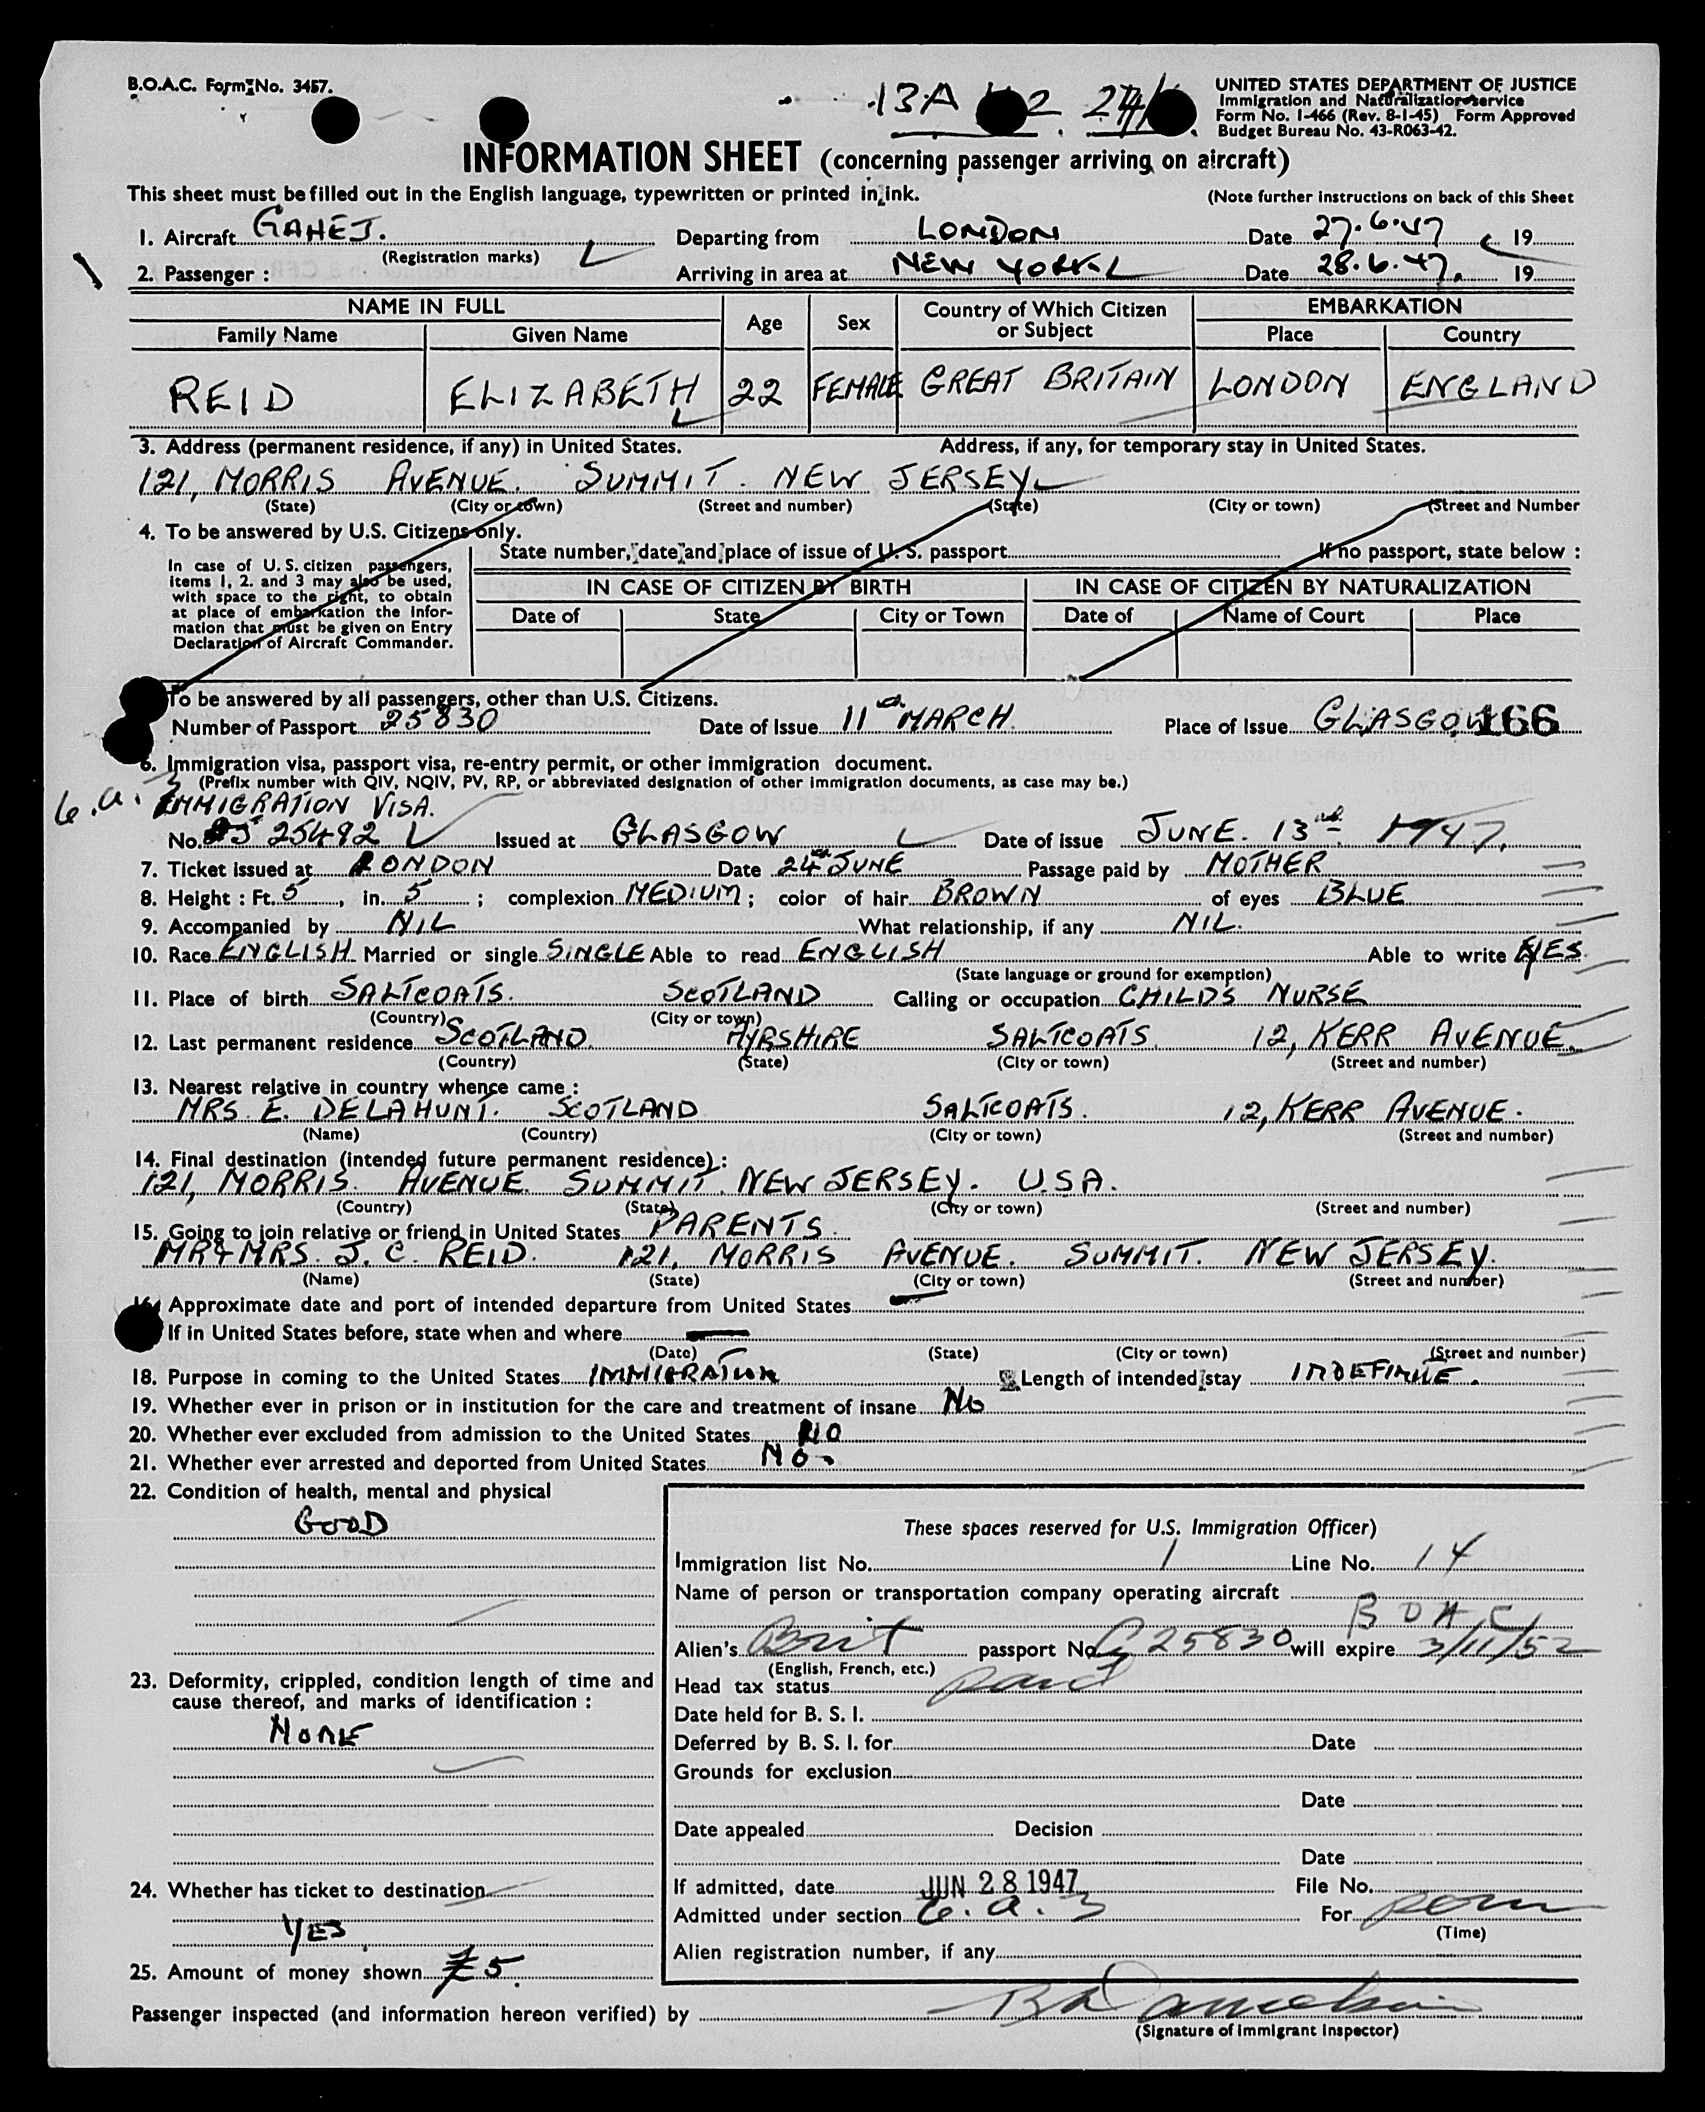 B.O.A.C. Form No. 3457.
13A 2 24
UNITED STATES DEPARTMENT OF JUSTICE
Immigration and Naturalization Service
Form No. I-466 (Rev. 8-1-45) Form Approved
Budget Bureau No. 43-R063-42.
INFORMATION SHEET (concerning passenger arriving on aircraft)
This sheet must be filled out in the English language, typewritten or printed in ink. (Note further instructions on back of this Sheet
1. Aircraft GAHEJ. Departing from LONDON Date 27.6.47 19
(Registration marks)
2. Passenger : Arriving in area at NEW YORK Date 28.6.47. 19
NAME IN FULL Age Sex Country of Which Citizen or Subject EMBARKATION
Family Name Given Name Place Country
REID ELIZABETH 22 FEMALE GREAT BRITAIN LONDON ENGLAND
3. Address (permanent residence, if any) in United States. Address, if any, for temporary stay in United States.
121, MORRIS AVENUE. SUMMIT. NEW JERSEY
(State) (City or town) (Street and number) (State) (City or town) (Street and Number
4. To be answered by U.S. Citizens only.
In case of U. S. citizen passengers,
items 1, 2. and 3 may also be used,
with space to the right, to obtain
at place of embarkation the infor-
mation that must be given on Entry
Declaration of Aircraft Commander.
State number, date and place of issue of U. S. passport If no passport, state below :
IN CASE OF CITIZEN BY BIRTH IN CASE OF CITIZEN BY NATURALIZATION
Date of State City or Town Date of Name of Court Place
To be answered by all passengers, other than U.S. Citizens.
Number of Passport 25830 Date of Issue 11th MARCH. Place of Issue GLASGOW 166
6. Immigration visa, passport visa, re-entry permit, or other immigration document.
(Prefix number with QIV, NQIV, PV, RP, or abbreviated designation of other immigration documents, as case may be.)
6.a.3 IMMIGRATION VISA.
No. 25492 Issued at GLASGOW Date of issue JUNE. 13th 1947.
7. Ticket issued at LONDON Date 24th JUNE Passage paid by MOTHER
8. Height : Ft. 5, in. 5 ; complexion MEDIUM; color of hair BROWN of eyes BLUE
9. Accompanied by NIL What relationship, if any NIL.
10. Race ENGLISH Married or single SINGLE Able to read ENGLISH Able to write YES.
(State language or ground for exemption)
11. Place of birth SALTCOATS. SCOTLAND Calling or occupation CHILD'S NURSE
(Country) (City or town)
12. Last permanent residence SCOTLAND. AYRSHIRE SALTCOATS. 12, KERR AVENUE.
(Country) (State) (City or town) (Street and number)
13. Nearest relative in country whence came :
MRS. E. DELAHUNT. SCOTLAND SALTCOATS. 12, KERR AVENUE.
(Name) (Country) (City or town) (Street and number)
14. Final destination (intended future permanent residence) :
121, MORRIS. AVENUE. SUMMIT. NEW JERSEY. U.S.A.
(Country) (State) (City or town) (Street and number)
15. Going to join relative or friend in United States PARENTS.
MR & MRS. J. C. REID. 121, MORRIS AVENUE. SUMMIT. NEW JERSEY.
(Name) (State) (City or town) (Street and number)
16. Approximate date and port of intended departure from United States
If in United States before, state when and where
(Date) (State) (City or town) (Street and number)
18. Purpose in coming to the United States IMMIGRATION Length of intended stay INDEFINITE.
19. Whether ever in prison or in institution for the care and treatment of insane No
20. Whether ever excluded from admission to the United States NO
21. Whether ever arrested and deported from United States NO
22. Condition of health, mental and physical
GOOD
These spaces reserved for U.S. Immigration Officer)
Immigration list No. 1 Line No. 14
Name of person or transportation company operating aircraft
BOAC
Alien's Brit passport No. C 25830 will expire 3/11/52
(English, French, etc.)
23. Deformity, crippled, condition length of time and
cause thereof, and marks of identification :
NONE
Head tax status paid
Date held for B. S. I.
Deferred by B. S. I. for Date
Grounds for exclusion
Date
Date appealed Decision
Date
24. Whether has ticket to destination
YES
If admitted, date JUN 28 1947 File No.
Admitted under section 6.a.3 For perm
(Time)
Alien registration number, if any
25. Amount of money shown £5.
Passenger inspected (and information hereon verified) by
(Signature of Immigrant Inspector)